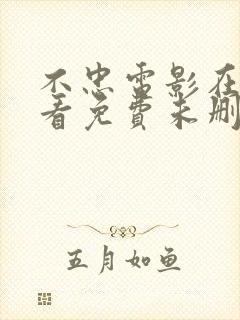 不忠雷影在
看免费未删
五月如鱼